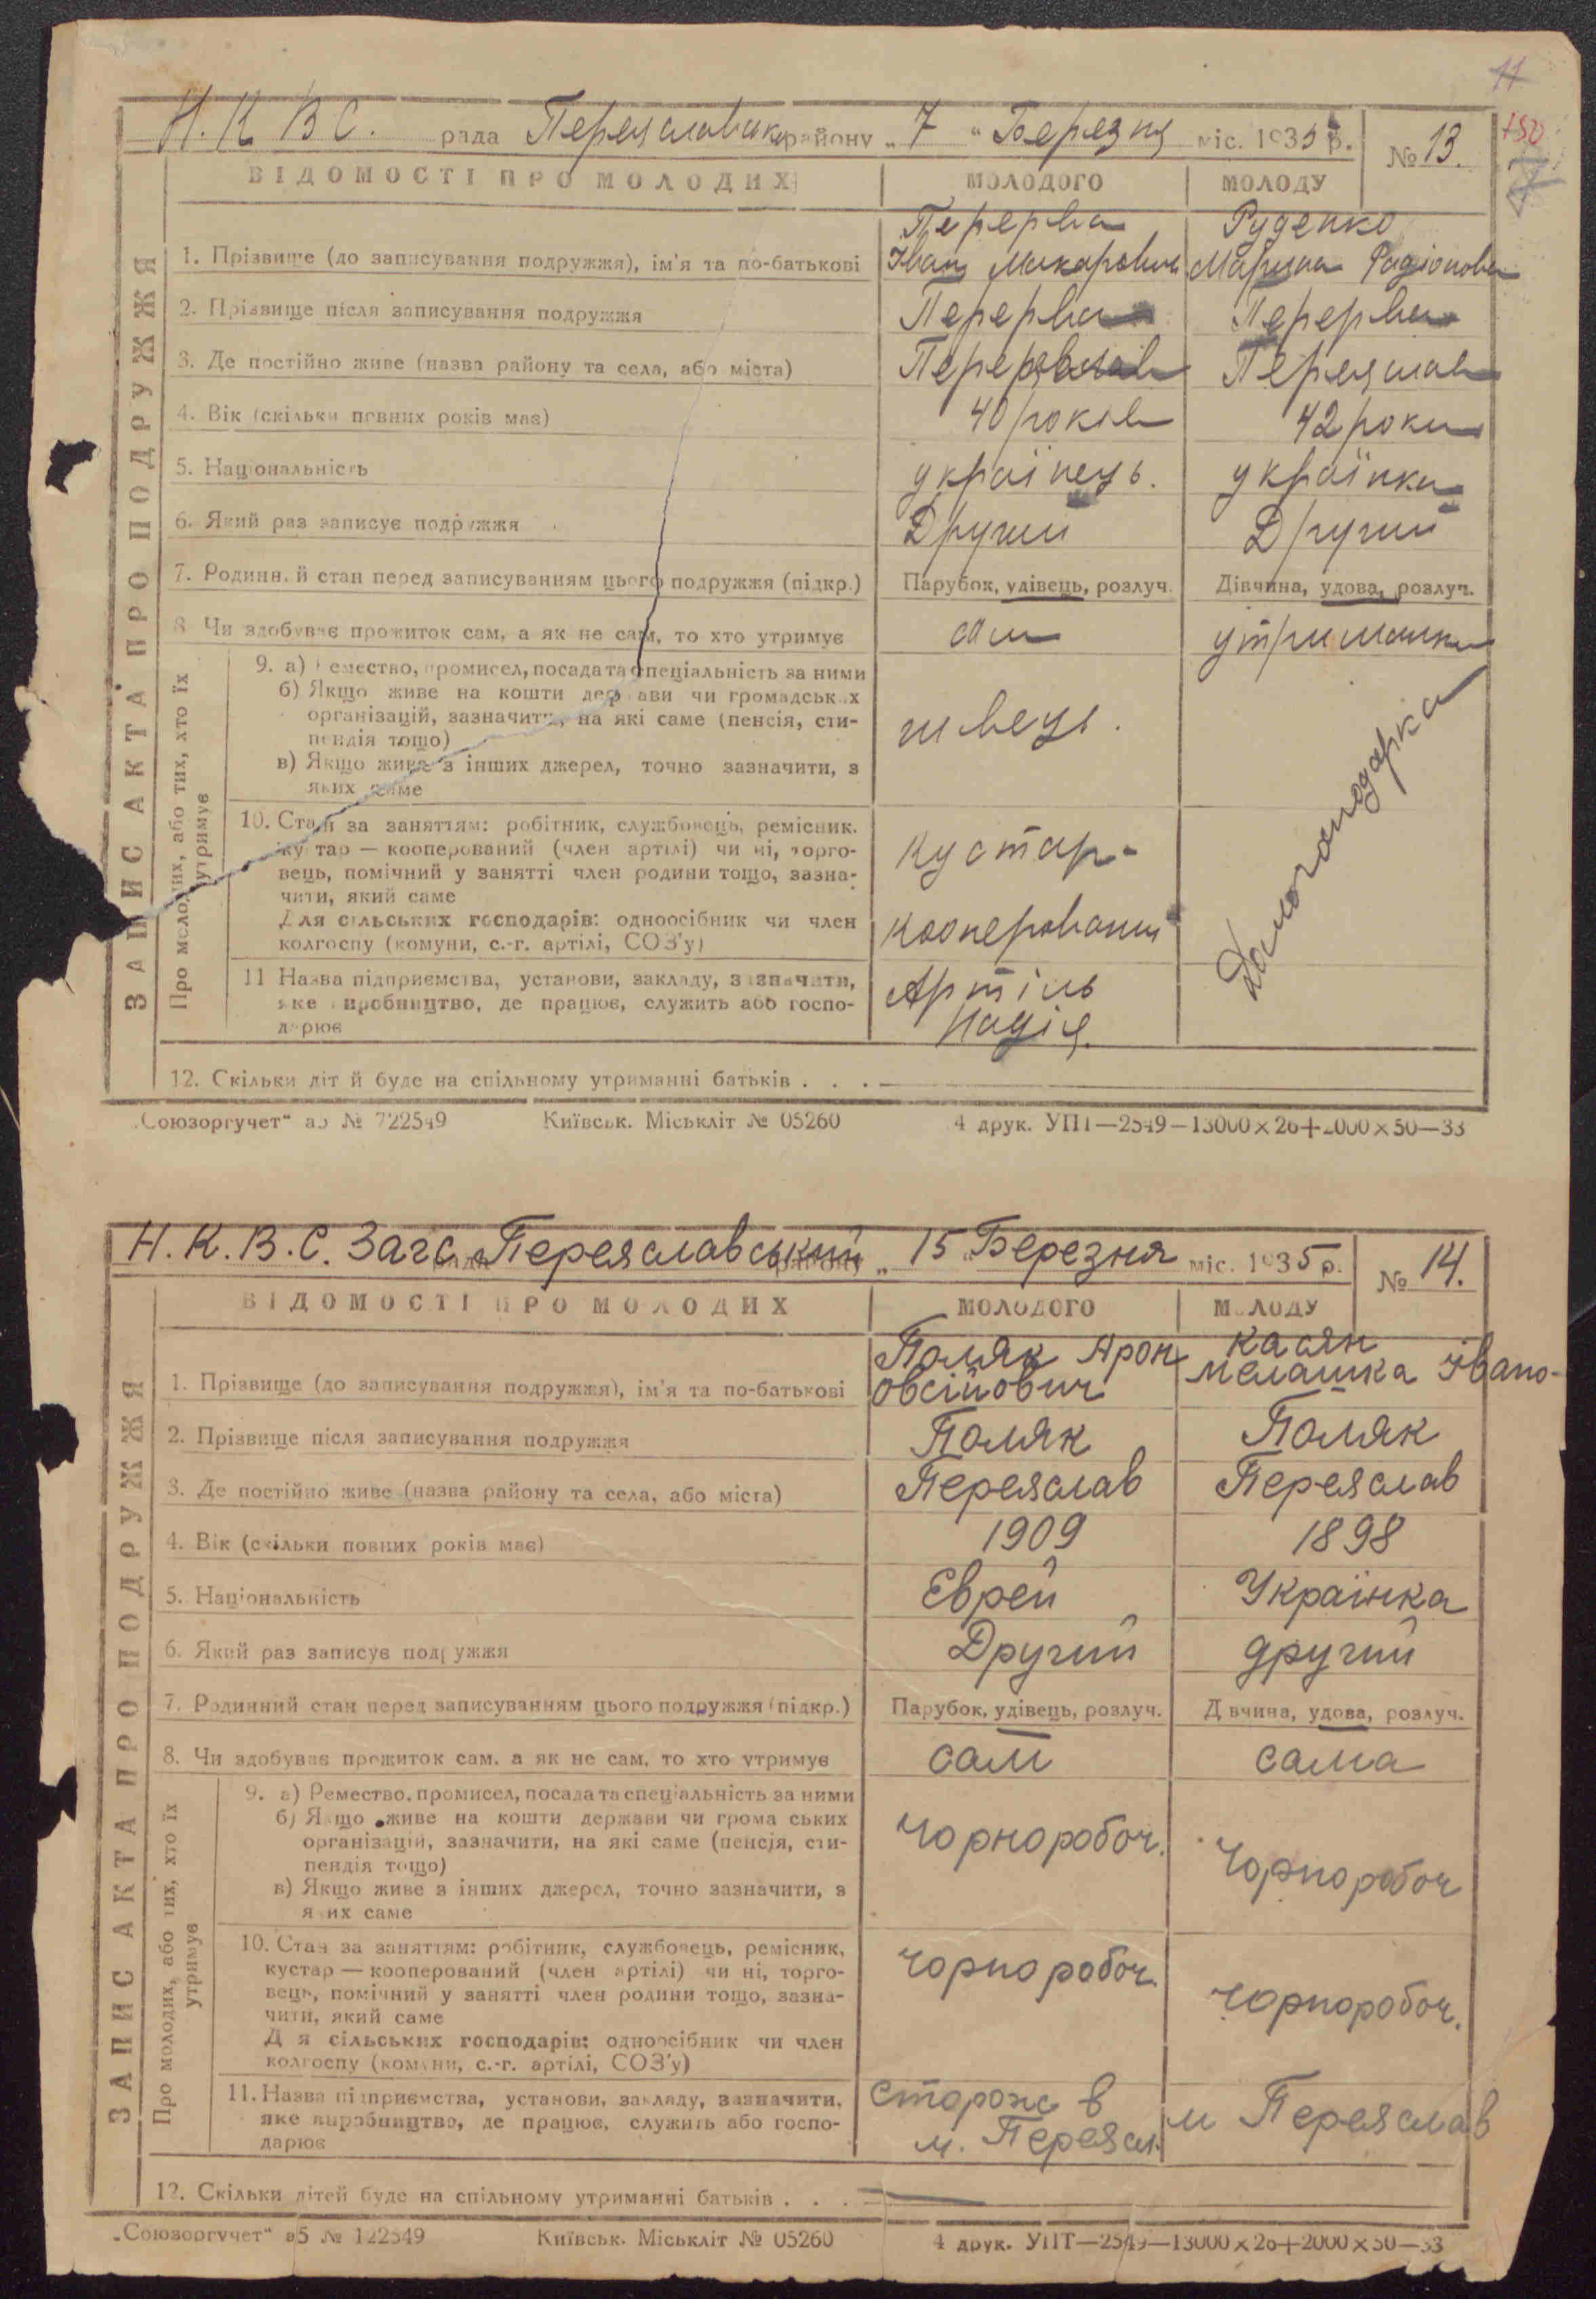 11
150
Н. К В С. рада Переяславск району „ 7 " Березня міс. 1935 р. № 13.
ВІДОМОСТІ ПРО МОЛОДИХ
МОЛОДОГО
МОЛОДУ
ЗАПИС АКТА ПРО ПОДРУЖЖЯ
1. Прізвище (до записування подружжя), ім'я та по-батькові
Перерва
Іван Макарович
Руденко
Марина Радіонова
2. Прізвище після записування подружжя
Перерва
Перерва
3. Де постійно живе (назва району та села, або міста)
Переяслав
Переяслав
4. Вік (скільки повних років має)
40 років
42 роки
5. Національність
українець.
українка
6. Який раз записує подружжя
Другий
Другий
7. Родинн. й стан перед записуванням цього подружжя (підкр.)
Парубок, удівець, розлуч.
Дівчина, удова, розлуч.
8 Чи здобуває прожиток сам, а як не сам, то хто утримує
сам
утриманка
Про молодих, або тих, хто їх утримує
9. а) Ремество, промисел, посада та спеціальність за ними
б) Якщо живе на кошти держави чи громадських
організацій, зазначити, на які саме (пенсія, сти-
пендія тощо)
в) Якщо живе з інших джерел, точно зазначити, з
яких саме
швець.
Домогоподарка
10. Стан за заняттям: робітник, службовець, ремісник.
кустар — кооперований (член артілі) чи ні, торго-
вець, помічний у занятті член родини тощо, зазна-
чити, який саме
Для сільських господарів: одноосібник чи член
колгоспу (комуни, с.-г. артілі, СОЗ'у)
кустар-
кооперований
11 Назва підприємства, установи, закладу, зазначити,
яке виробництво, де працює, служить або госпо-
дарює
Артіль
Надія.
12. Скільки діт й буде на спільному утриманні батьків . . .
„Союзоргучет" аб № 722549 Київськ. Міськліт № 05260 4 друк. УПТ—2549—13000×26+2000×50—33
Н. К. В. С. Загс рада Переяславський району „ 15 " Березня міс. 1935 р. № 14.
ВІДОМОСТІ ПРО МОЛОДИХ
МОЛОДОГО
МОЛОДУ
ЗАПИС АКТА ПРО ПОДРУЖЖЯ
1. Прізвище (до записування подружжя), ім'я та по-батькові
Поляк Арон
Овсійович
Касян
Мелашка Івано-
2. Прізвище після записування подружжя
Поляк
Поляк
3. Де постійно живе (назва району та села, або міста)
Переяслав
Переяслав
4. Вік (скільки повних років має)
1909
1898
5. Національність
Еврей
Українка
6. Який раз записує подружжя
Другий
другий
7. Родинний стан перед записуванням цього подружжя (підкр.)
Парубок, удівець, розлуч.
Д вчина, удова, розлуч.
8. Чи здобуває прожиток сам, а як не сам, то хто утримує
сам
сама
Про молодих, або тих, хто їх утримує
9. а) Ремество, промисел, посада та спеціальність за ними
б) Якщо живе на кошти держави чи грома ських
організацій, зазначити, на які саме (пенсія, сти-
пендія тощо)
в) Якщо живе з інших джерел, точно зазначити, з
яких саме
чорноробоч.
чорноробоч
10. Стан за заняттям: робітник, службовець, ремісник,
кустар — кооперований (член артілі) чи ні, торго-
вець, помічний у занятті член родини тощо, зазна-
чити, який саме
Д я сільських господарів: одноосібник чи член
колгоспу (комуни, с.-г. артілі, СОЗ'у)
чорноробоч.
чорноробоч.
11. Назва підприємства, установи, закладу, зазначити,
яке виробництво, де працює, служить або госпо-
дарює
сторож в
м. Переясл.
м Переяслав
12. Скільки дітей буде на спільному утриманні батьків . . .
„Союзоргучет" а5 № 122549 Київськ. Міськліт № 05260 4 друк. УПТ—2549—13000×26+2000×50—33